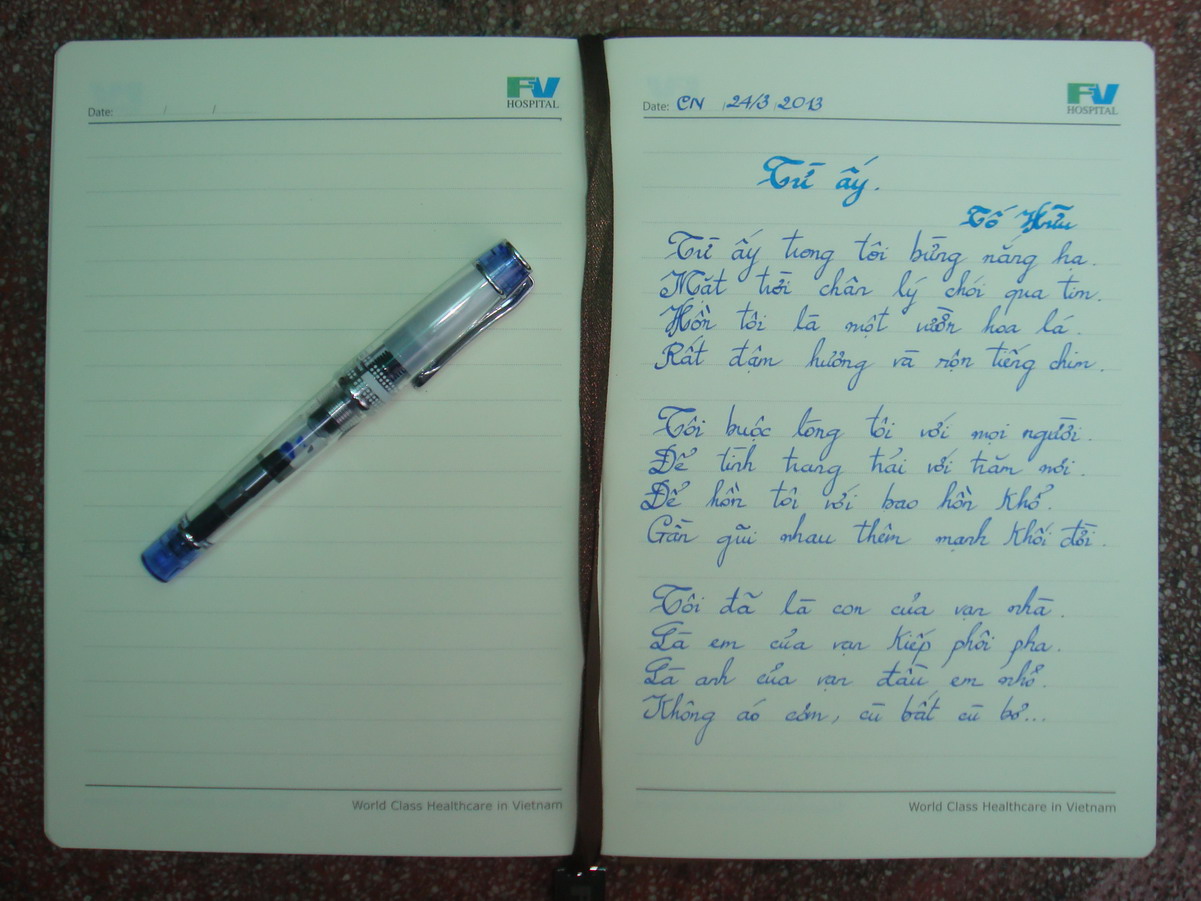 Date: / /
FV
HOSPITAL
Date: CN / 24/3 / 2013
FV
HOSPITAL
Từ ấy.
Tố Hữu
Từ ấy trong tôi bừng nắng hạ.
Mặt trời chân lý chói qua tim.
Hồn tôi là một vườn hoa lá.
Rất đậm hương và rộn tiếng chim.
Tôi buộc lòng tôi với mọi người.
Để tình trang trải với trăm nơi.
Để hồn tôi với bao hồn khổ.
Gần gũi nhau thêm mạnh khối đời.
Tôi đã là con của vạn nhà.
Là em của vạn kiếp phôi pha.
Là anh của vạn đầu em nhỏ.
Không áo cơm, cù bất cù bơ...
World Class Healthcare in Vietnam
World Class Healthcare in Vietnam